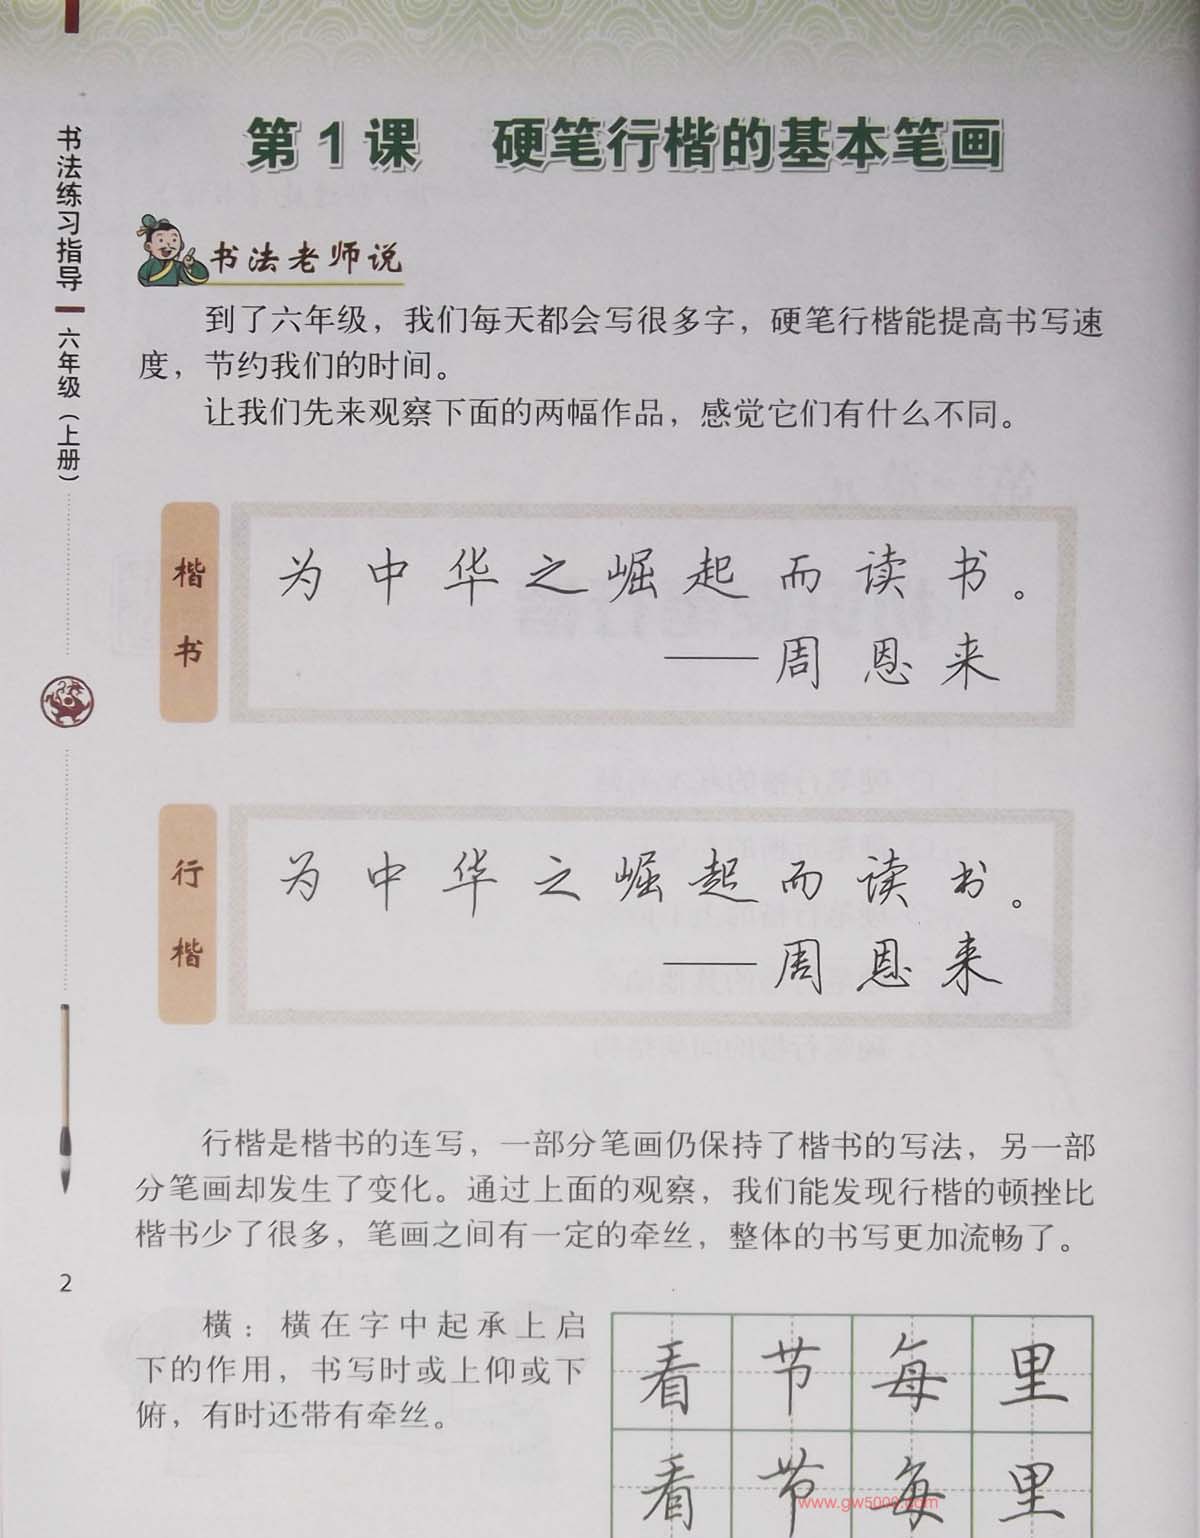 书法练习指导
六年级（上册）
第1课 硬笔行楷的基本笔画
书法老师说
到了六年级，我们每天都会写很多字，硬笔行楷能提高书写速
度，节约我们的时间。
让我们先来观察下面的两幅作品，感觉它们有什么不同。
楷书
为中华之崛起而读书。
——周恩来
行楷
为中华之崛起而读书。
——周恩来
行楷是楷书的连写，一部分笔画仍保持了楷书的写法，另一部
分笔画却发生了变化。通过上面的观察，我们能发现行楷的顿挫比
楷书少了很多，笔画之间有一定的牵丝，整体的书写更加流畅了。
2
横：横在字中起承上启
下的作用，书写时或上仰或下
俯，有时还带有牵丝。
看节每里
看节每里